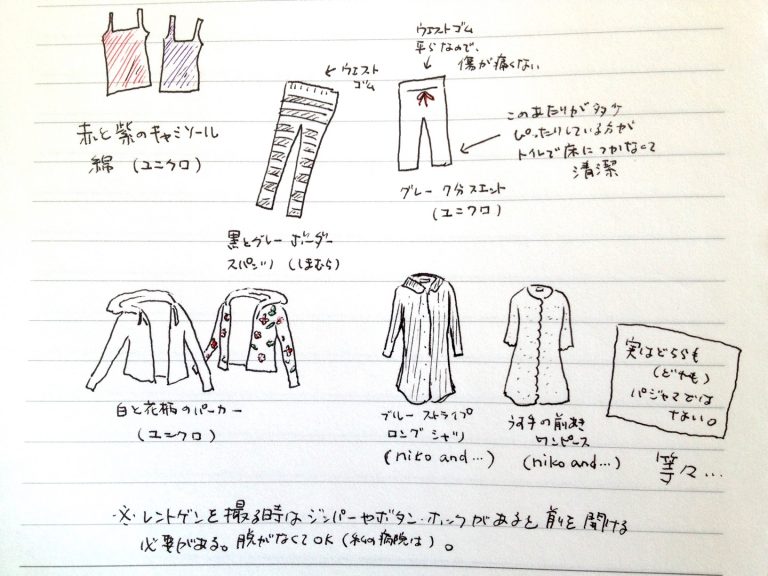 ウエスト
ゴム
ウエストゴム
平らなので、
傷が痛くない
赤と紫のキャミソール
綿 (ユニクロ)
このあたりが多少
ぴったりしている方が
トイレで床につかなくて
清潔
グレー 7分スエット
(ユニクロ)
黒とグレー ボーダー
スパッツ (しまむら)
白と花柄のパーカー
(ユニクロ)
ブルー ストライプ
ロング シャツ
(niko and...)
うす手の前あき
ワンピース
(niko and...)
実はどちらも
(どれも)
パジャマでは
ない。
等々...
※ レントゲンを撮る時はジッパーやボタン・ホックがあると前を開ける
必要がある。脱がなくてOK (私の病院は)。